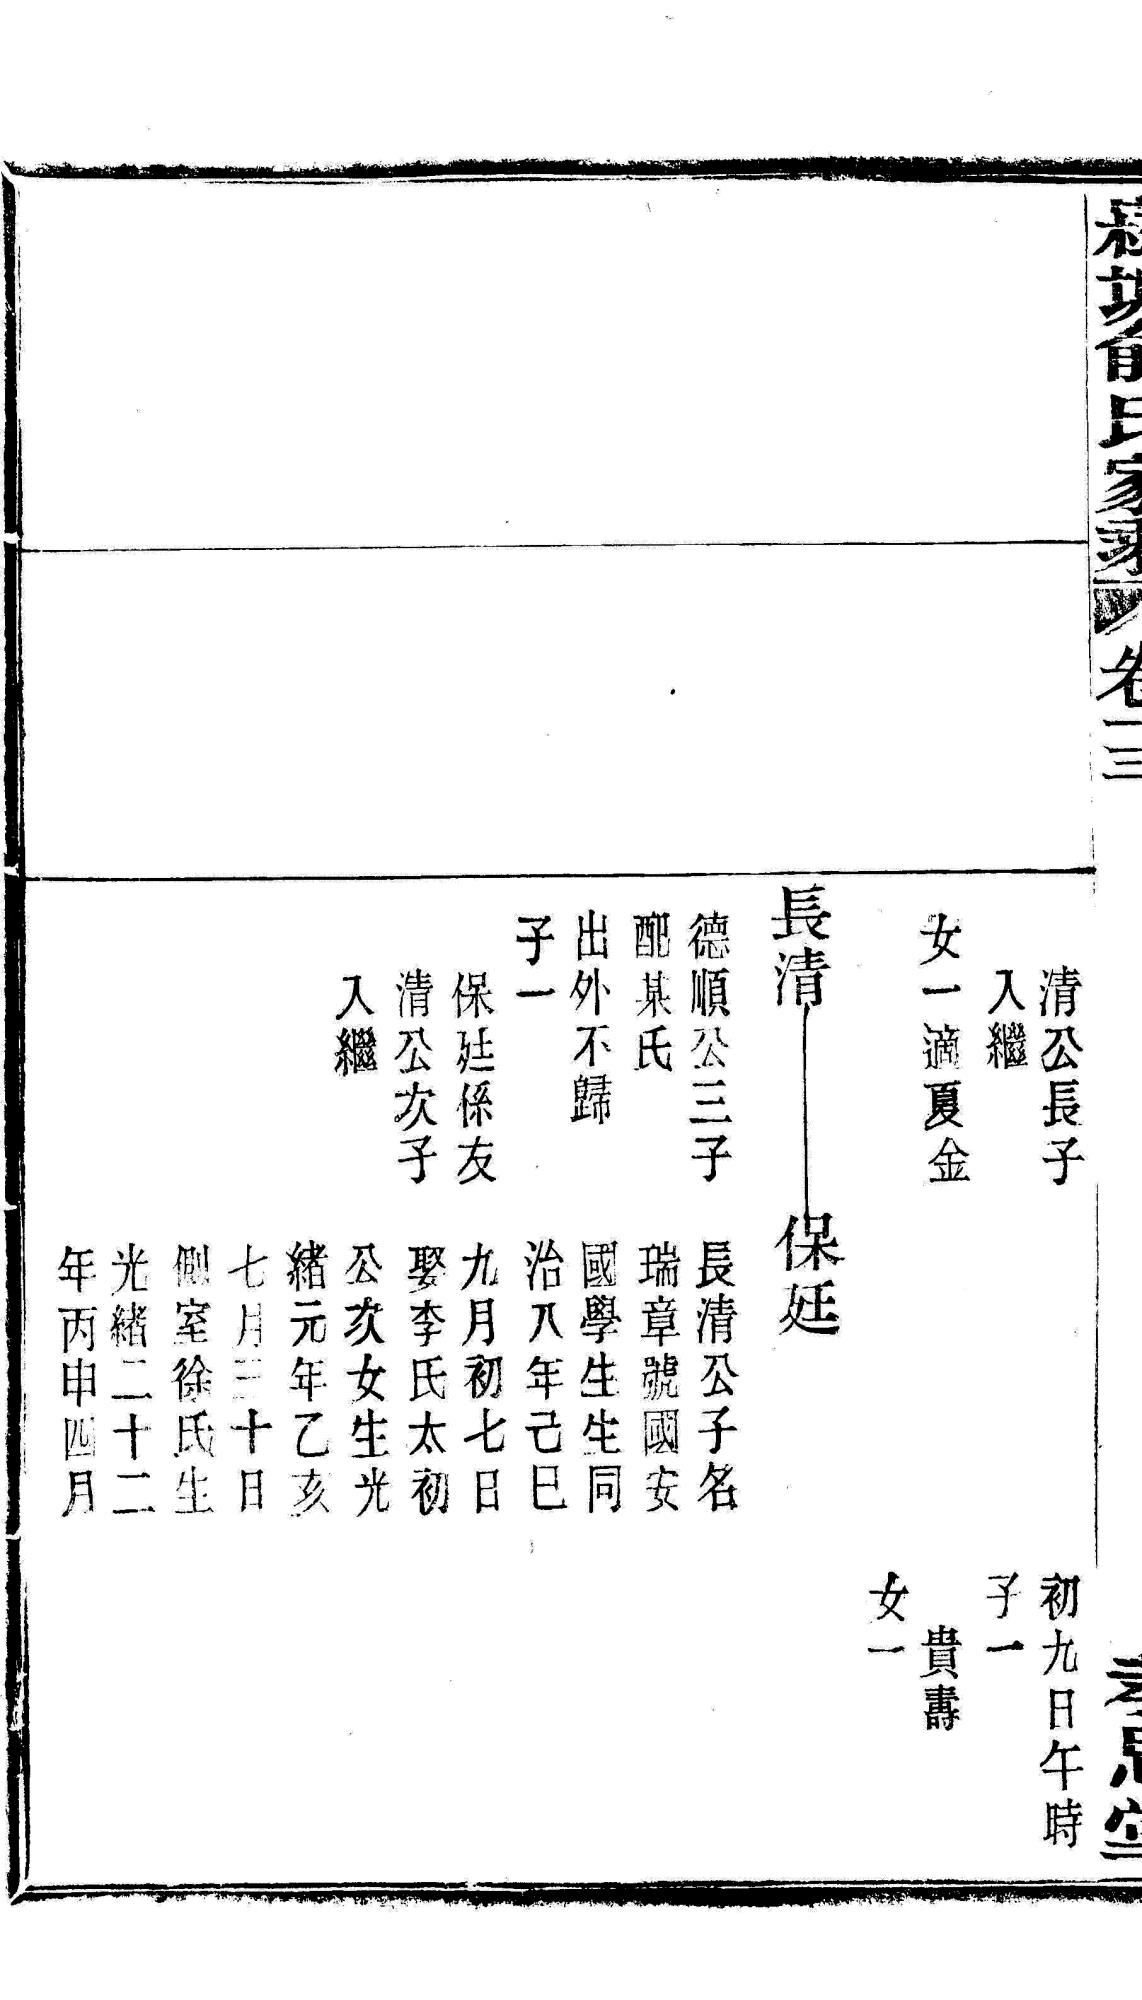 俞氏家乘
卷三
孝思堂
清公長子
入繼
女一適夏金
初九日午時
子一
貴壽
女一
長清
保廷
德順公三子
配某氏
出外不歸
子一
保廷係友
清公次子
入繼
長清公子名
瑞章號國安
國學生生同
治八年己巳
九月初七日
娶李氏太初
公次女生光
緒元年乙亥
七月三十日
側室徐氏生
光緒二十二
年丙申四月